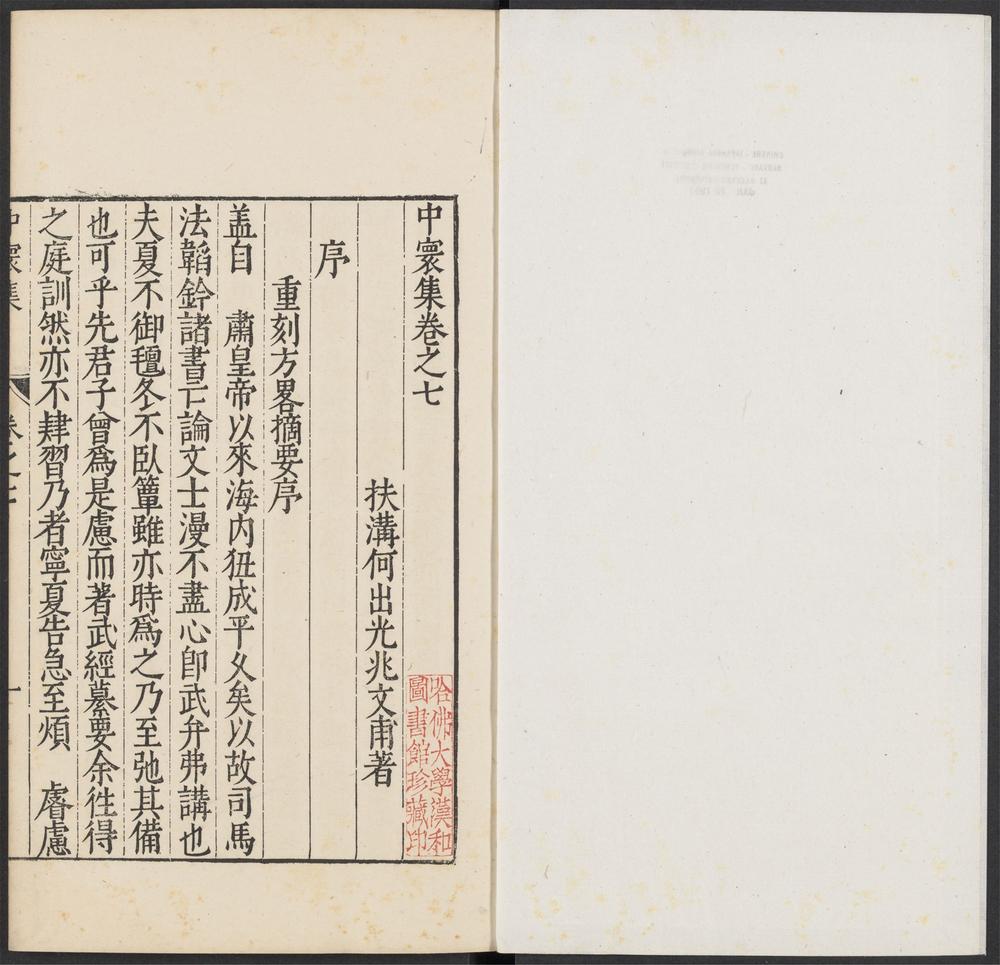 中寰集卷之七
扶溝何出光兆文甫著
序
重刻方畧摘要序
盖自 肅皇帝以來海内狃成平久矣以故司馬
法韜鈐諸書亡論文士漫不盡心卽武弁弗講也
夫夏不御氊冬不臥簟雖亦時爲之乃至弛其備
也可乎先君子曾爲是慮而著武經纂要余徃得
之庭訓然亦不肄習乃者寧夏告急至煩 睿慮
中寰集
卷之七
一
哈佛大學漢和
圖書館珍藏印